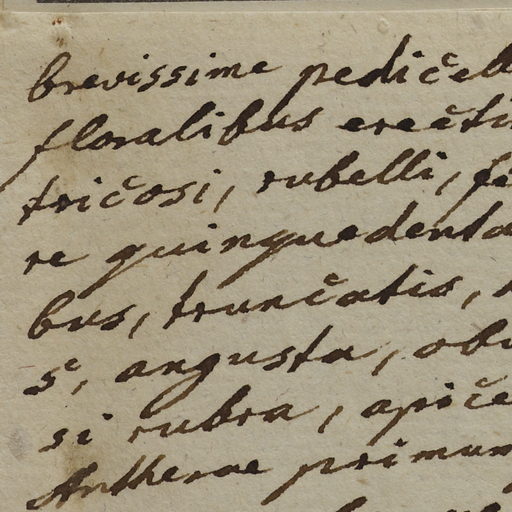 brevissime pedičell
floralibus erečti
tričosi, rubelli, fé
re quinquedenta
bus, trunčatis,
5, angusta, obv
si rubra, apiče
Antherae primum